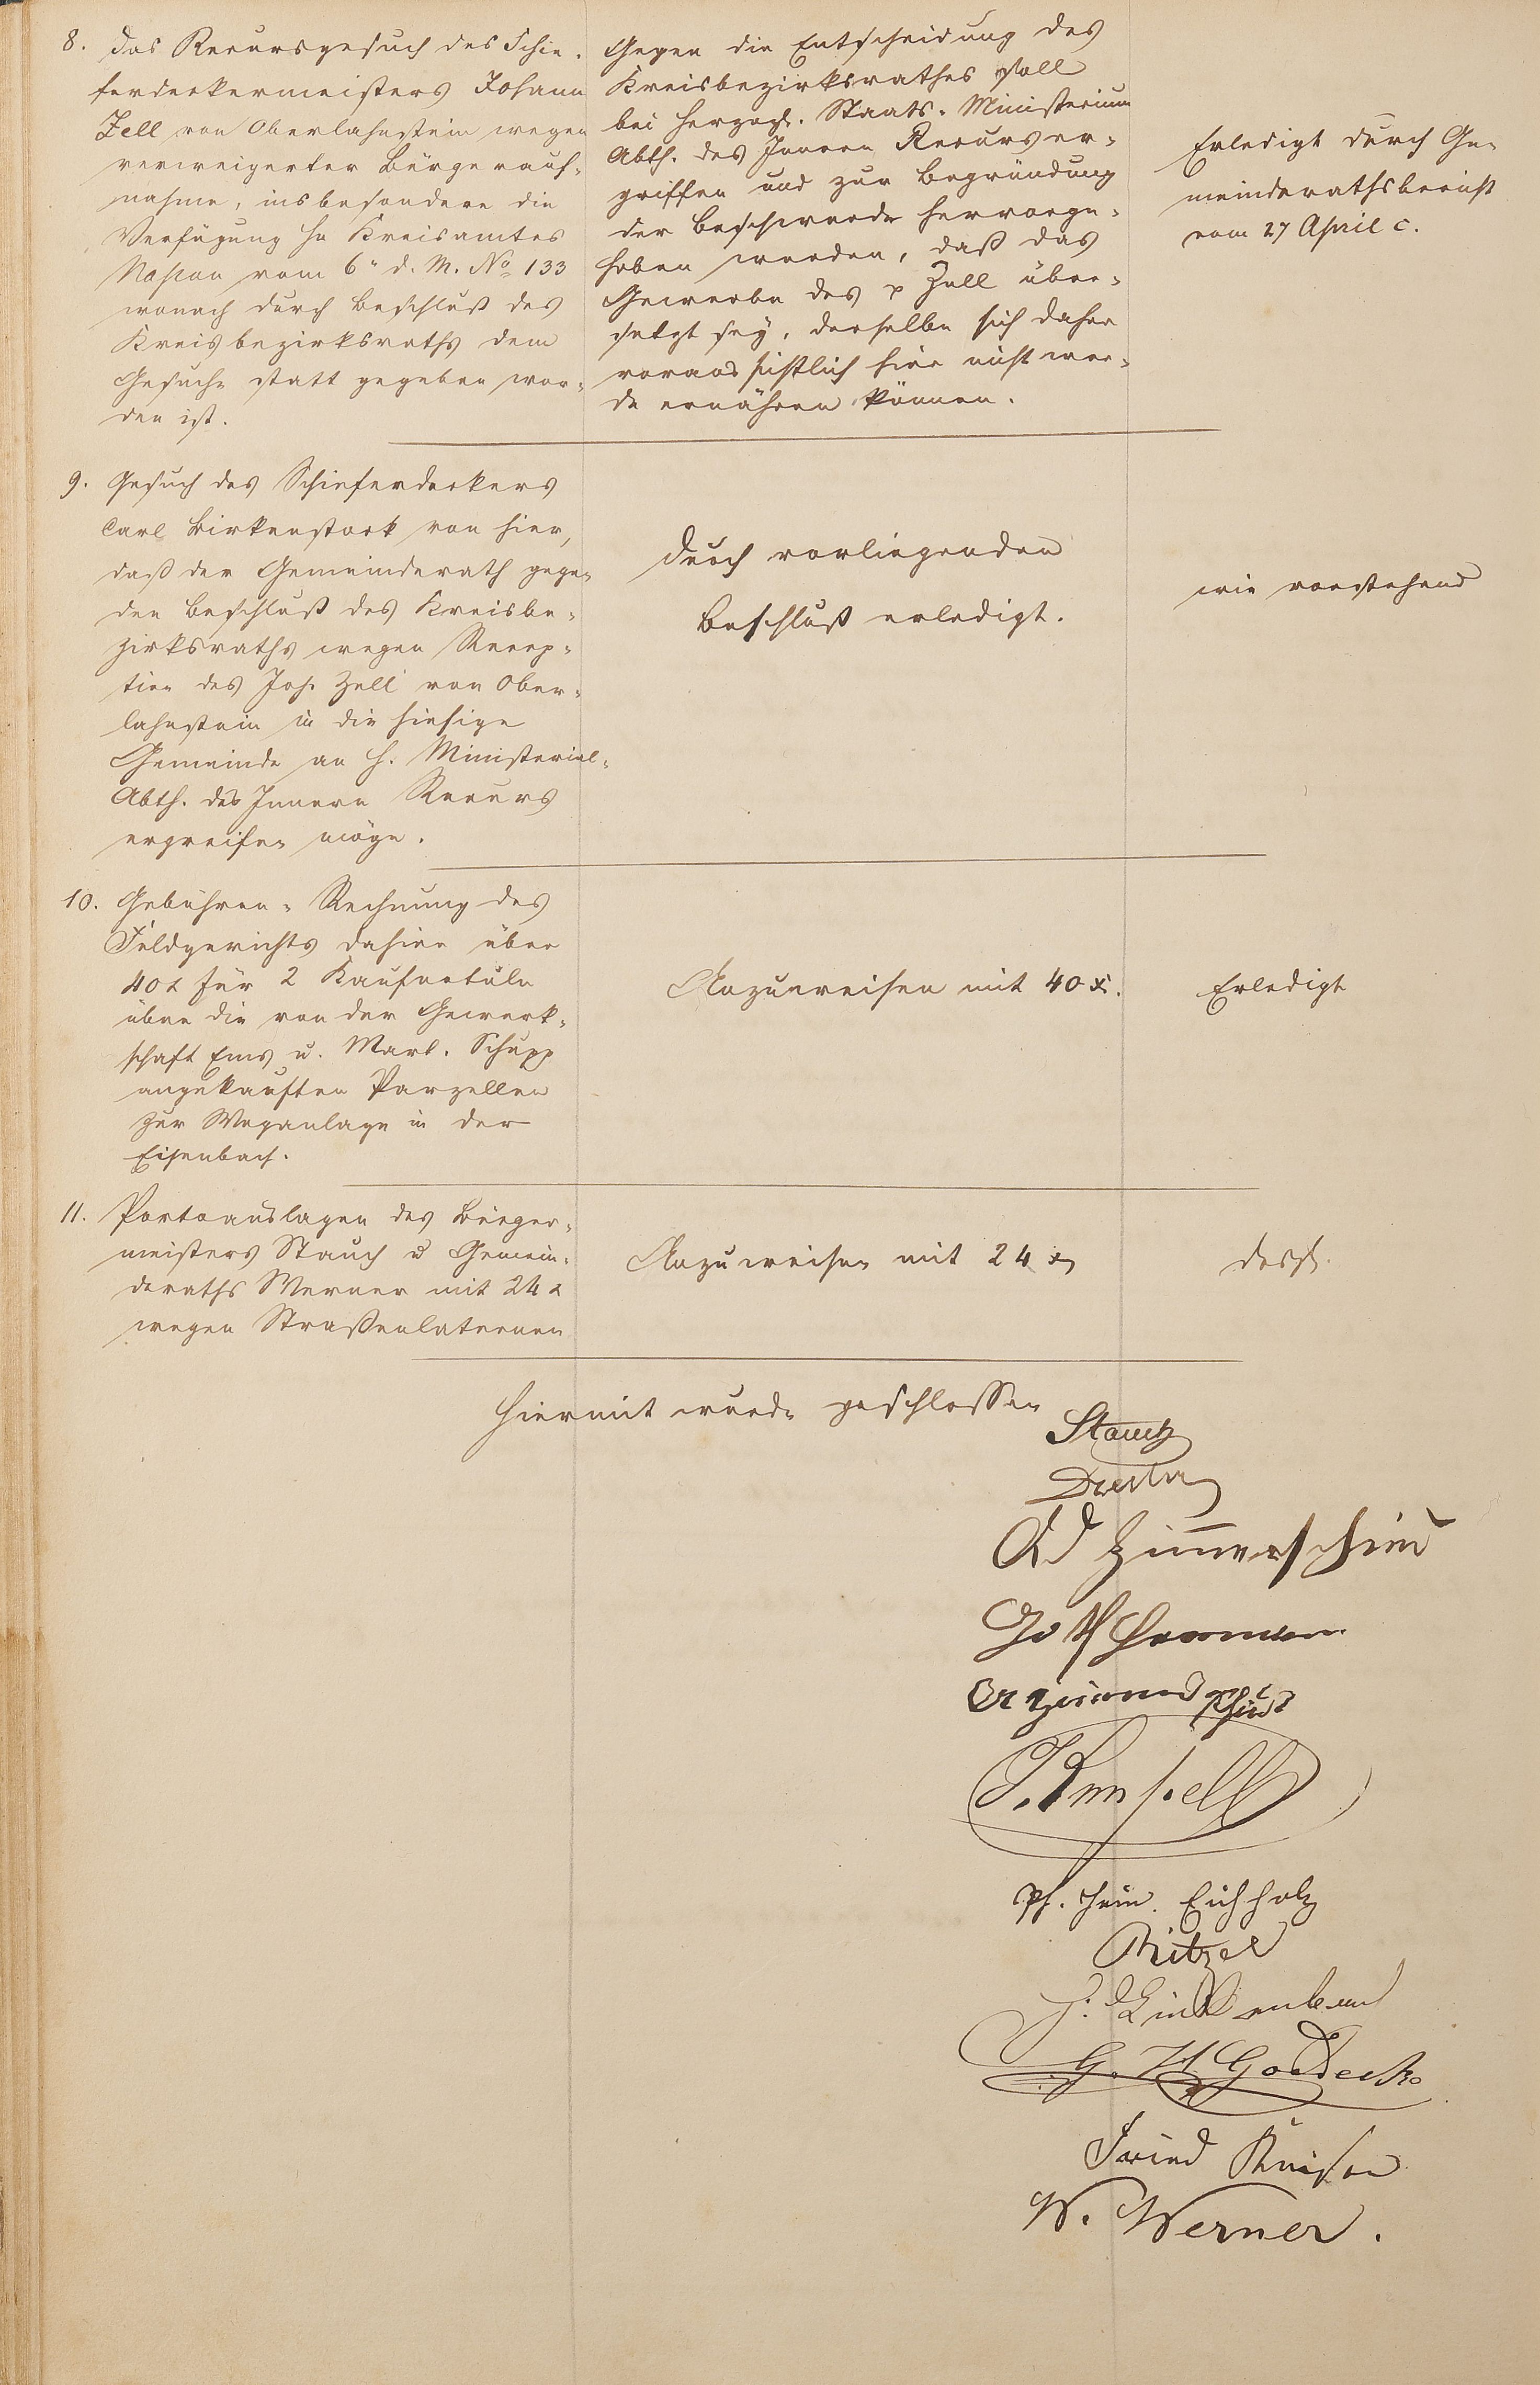 8. Das Recursgesuch des Schie-
ferdeckermeisters Johann
Zell von Oberlahnstein wegen
verweigerter Bürgerauf-
nahme, insbesondere die
Verfügung Hz Kreisamtes
Nassau vom 6" d. M. No 133
wonach durch Beschluß des
Kreisbezirksraths dem
Gesuche statt gegeben wor-
den ist.
Gegen die Entscheidung des
Kreisbezirksrathes soll
bei Herzogl. Staats-Ministerium
Abth. des Innern Recurs er-
griffen und zur Begründung
der Beschwerde hervorge-
hoben werden, daß das
Gewerbe des p Zell über-
setzt sey, derselbe sich daher
voraussichtlich hier nicht wer-
de ernähren können.
Erledigt durch Ge-
meinderathsbericht
vom 27 April c.
9. Gesuch des Schieferdeckers
Carl Birkenstock von hier,
daß der Gemeinderath gegen
den Beschluß des Kreisbe-
zirksraths wegen Recep-
tion des Joh. Zell von Ober-
lahnstein in die hiesige
Gemeinde an H. Ministerial-
Abth. des Innern Recurs
ergreifen möge.
Durch vorliegenden
Beschluß erledigt.
wie vorstehend
10. Gebühren-Rechnung des
Feldgerichts dahier über
40 x für 2 Kaufnotuln
über die von der Gewerk-
schaft Ems u. Marl. Schupp
angekauften Parzellen
zur Weganlage in der
Eisenbach.
Anzuweisen mit 40 x.
Erledigt
11. Portoauslagen des Bürger-
meisters Stauch u Gemein-
deraths Werner mit 24 x
wegen Straßenlaternen
Anzuweisen mit 24 x
dessgl.
Hiermit wurde geschlossen
Stauch
Ad Zimmerschied
Hermann
Zimmerschied
Ph. Hein. Eichholz
Ritzel
H. Linkenbach
G. H. Goedecke
Fried
W. Werner.